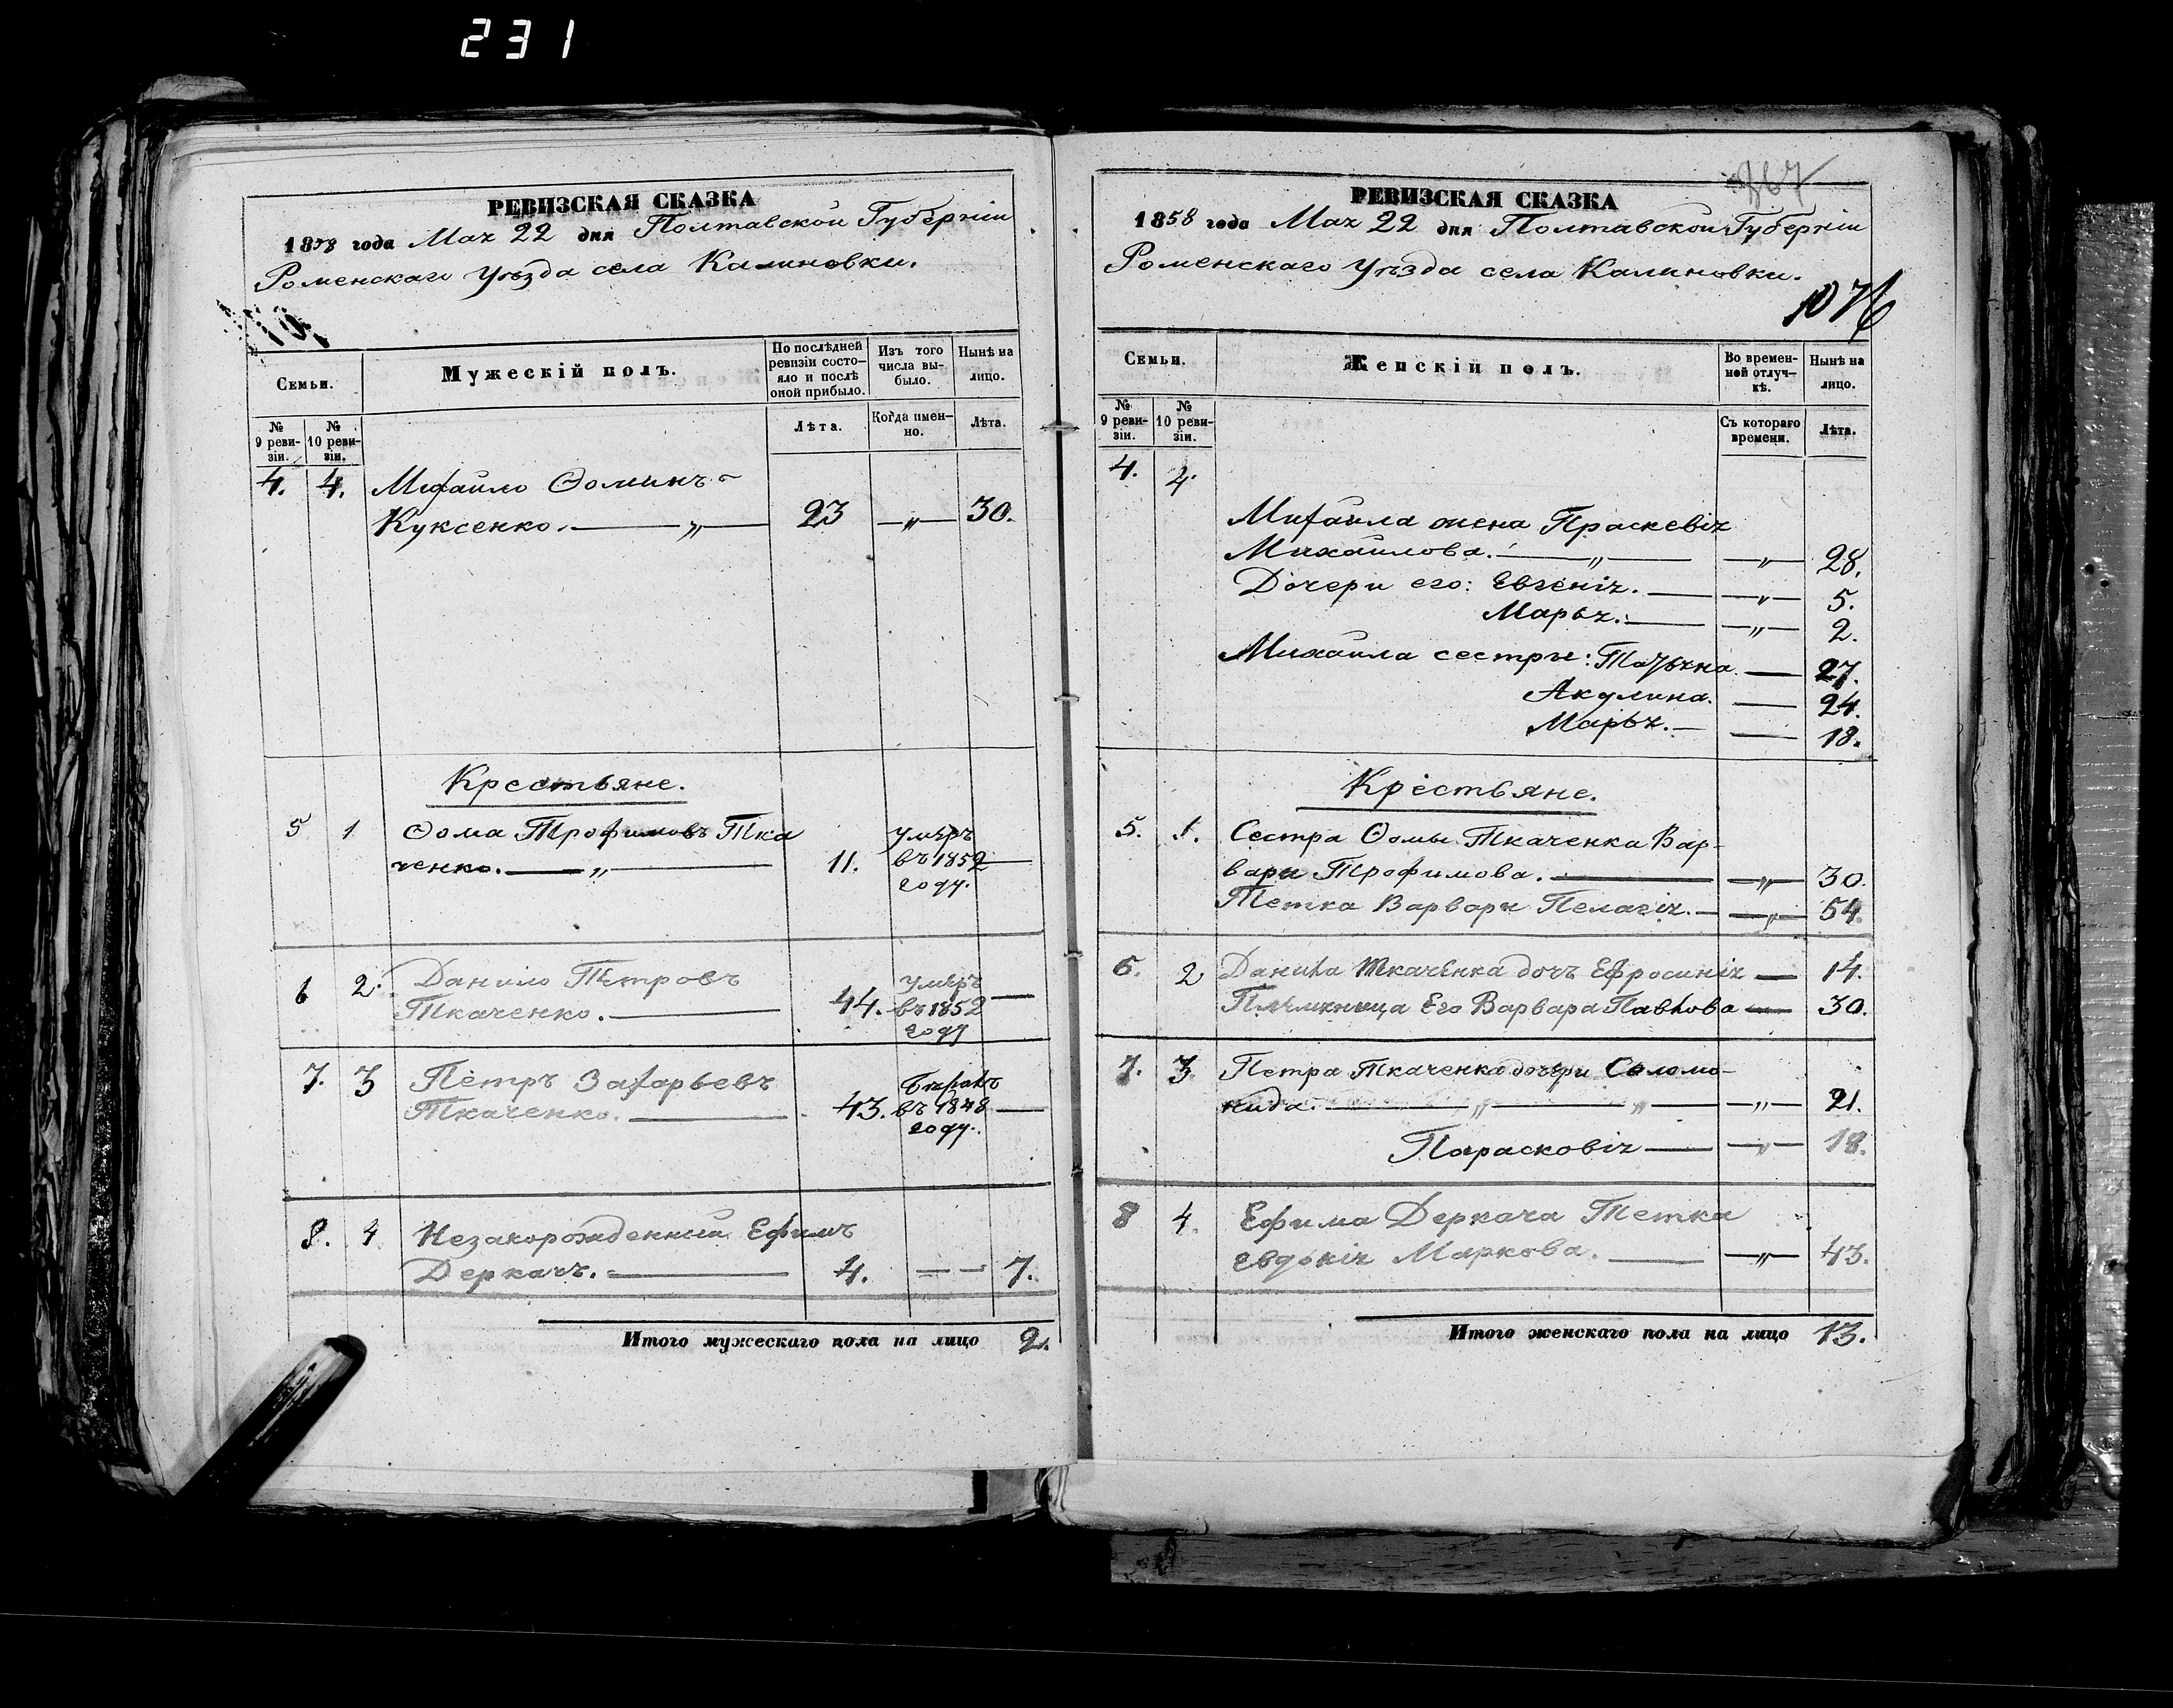 231
РЕВИЗСКАЯ СКАЗКА
1858 года Мая 22 дня Полтавской Губерніи
Роменскаго Уѣзда села Калиновки.
Семьи.
Мужескій полъ.
По послѣдней ревизіи состояло и послѣ оной прибыло.
Изъ того числа выбыло.
Нынѣ на лицо.
№ 9 ревизіи.
№ 10 ревизіи.
Лѣта.
Когда именно.
Лѣта.
4. 4. Михайло Ѳоминъ
Куксенко. — „ — 23 — „ — 30.
Крестьяне.
5 1 Ѳома Трофимовъ Тка
ченко. — „ — 11. умеръ въ 1852 году. —
6 2. Данило Петровъ
Ткаченко. — 44. умеръ въ 1852 году —
7. 3 Петръ Захарьевъ
Ткаченко. — 43. въ 1848 году. —
8. 4 Незакорожденный Ефимъ
Деркачъ. — 4. — — 7.
Итого мужескаго пола на лицо 2.
РЕВИЗСКАЯ СКАЗКА
1858 года Мая 22 дня Полтавской Губерніи
Роменскаго Уѣзда села Калиновки.
1076
Семьи.
Женскій полъ.
Во временной отлучкѣ.
Нынѣ на лицо.
№ 9 ревизіи.
№ 10 ревизіи.
Съ котораго времени.
Лѣта.
4. 4.
Михаила жена Праскевія
Михайлова. — „ — — „ — 28.
Дочери его: Евгенія. — — „ — 5.
Марья. — — „ — 2.
Михаила сестры: Татьяна. — 27.
Акулина. — 24.
Марья. — — 18.
Крестьяне.
5. 1. Сестра Ѳомы Ткаченка Вар-
вара Трофимова. — — „ — 30.
Тетка Варвары Пелагія. — — „ — 54.
6. 2 Данила Ткаченка дочь Ефросинія — 14.
Племянница Его Варвара Павлова — 30.
7. 3 Петра Ткаченка дочери Соломо-
нида. — „ — „ — — „ — 21.
Парасковія — — „ — 18.
8 4. Ефима Деркача Тетка
Евдокія Маркова. — — „ — 43.
Итого женскаго пола на лицо 13.